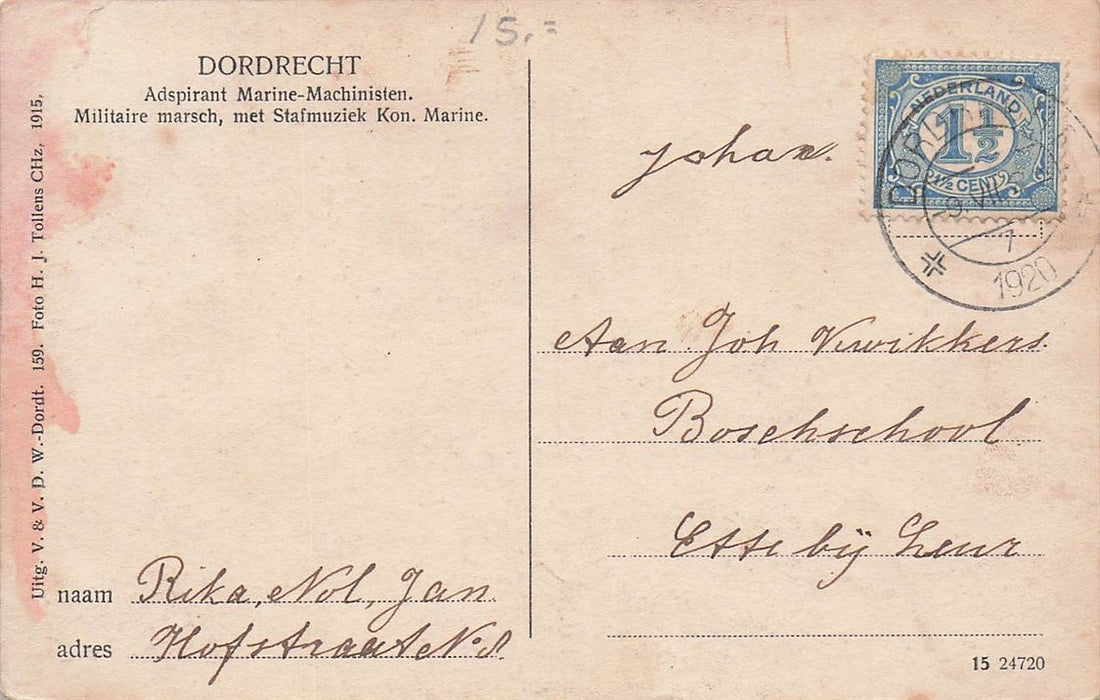 15.=
DORDRECHT
Adspirant Marine-Machinisten.
Militaire marsch, met Stafmuziek Kon. Marine.
Uitg. V. & V. D. W.-Dordt. 159. Foto H. J. Tollens CHz, 1915,
NEDERLAND
1½
1½ CENT
DORDRECHT
9.VII
7
1920
johan.
Aan Joh Kwikkers
Boschschool
Etten bij Leur
naam Rika, Nol, Jan
adres Hofstraat No. 8.
15 24720